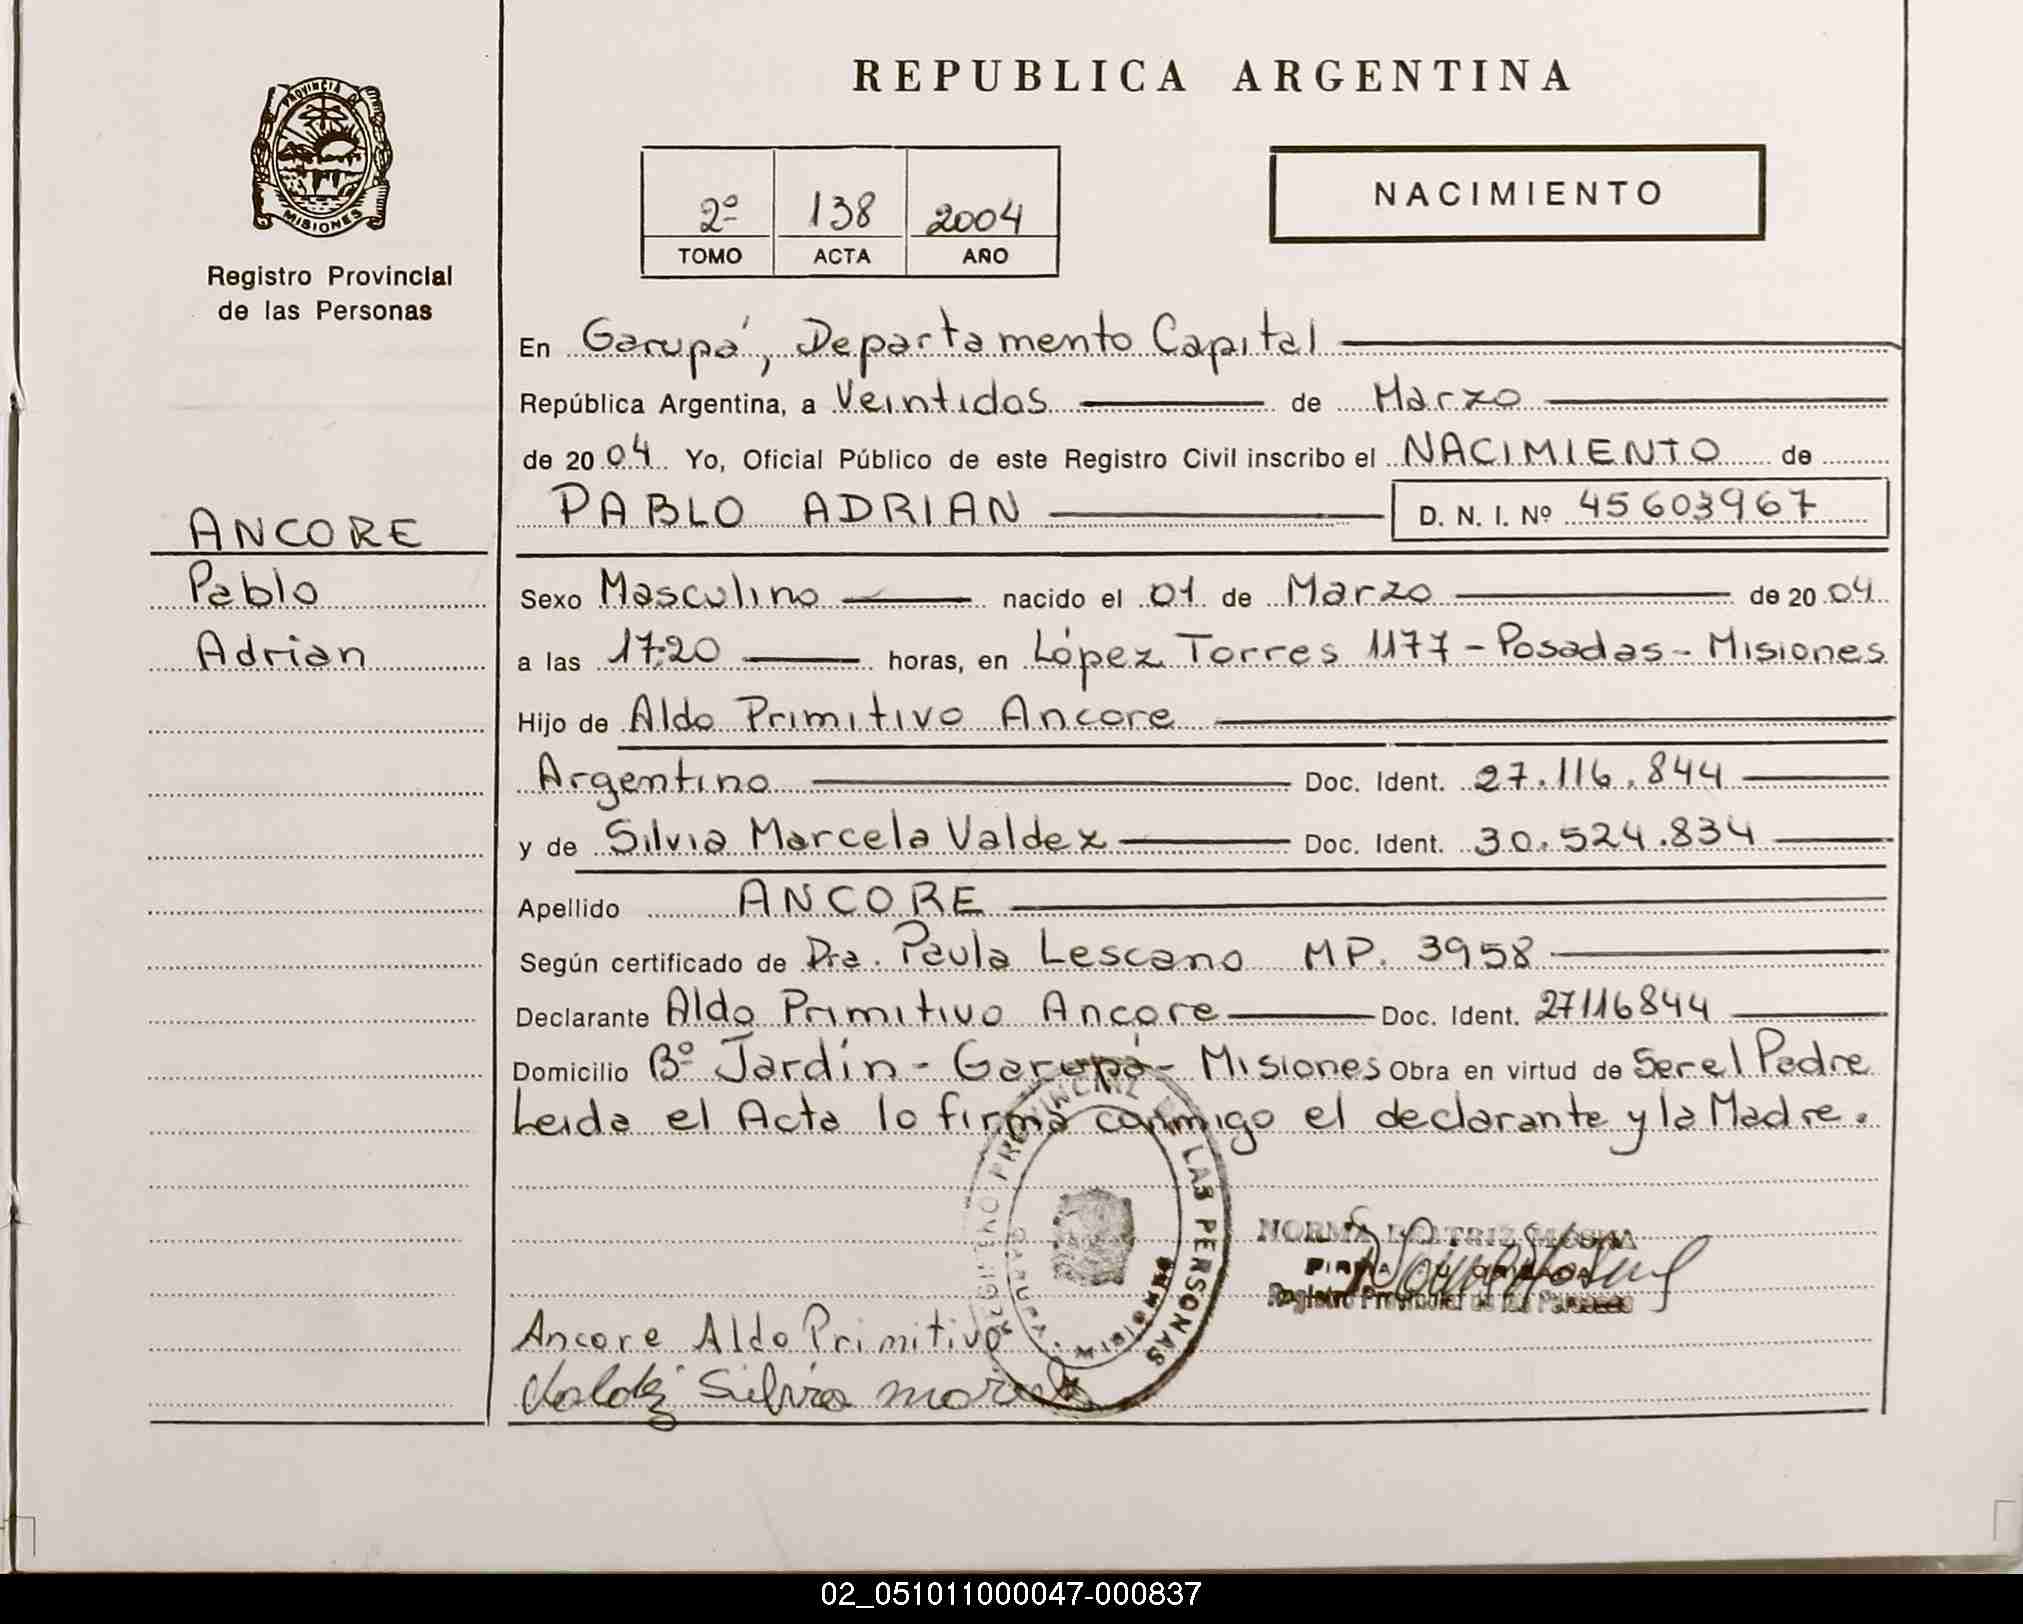 PROVINCIA DE
MISIONES
Registro Provincial
de las Personas
REPUBLICA ARGENTINA
2º 138 2004
TOMO ACTA AÑO
NACIMIENTO
En Garupá, Departamento Capital
República Argentina, a Veintidos de Marzo
de 2004 Yo, Oficial Público de este Registro Civil inscribo el NACIMIENTO de
PABLO ADRIAN D. N. I. Nº 45603967
ANCORE
Pablo
Adrian
Sexo Masculino nacido el 01 de Marzo de 2004
a las 17:20 horas, en López Torres 1177 - Posadas - Misiones
Hijo de Aldo Primitivo Ancore
Argentino Doc. Ident. 27.116.844
y de Silvia Marcela Valdez Doc. Ident. 30.524.834
Apellido ANCORE
Según certificado de Dra. Paula Lescano MP. 3958
Declarante Aldo Primitivo Ancore Doc. Ident. 27116844
Domicilio Bº Jardín - Garupá - Misiones Obra en virtud de Ser el Padre
Leida el Acta lo firma conmigo el declarante y la Madre.
REGISTRO PROVINCIAL DE LAS PERSONAS
GARUPA MISIONES
NORMA BEATRIZ
FIRMA AUTORIZADA
Registro Provincial de las Personas
Ancore Aldo Primitivo
Valdez Silvia Marcela
02_051011000047-000837